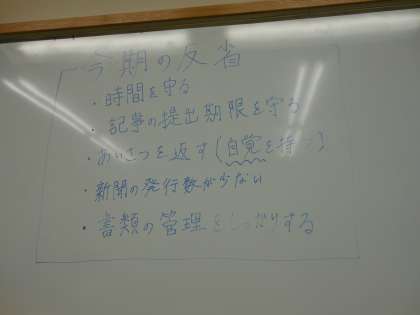 今期の反省
・時間を守る
・記事の提出期限を守る
・あいさつを返す(自覚を持つ)
・新聞の発行数が少ない
・書類の管理をしっかりする